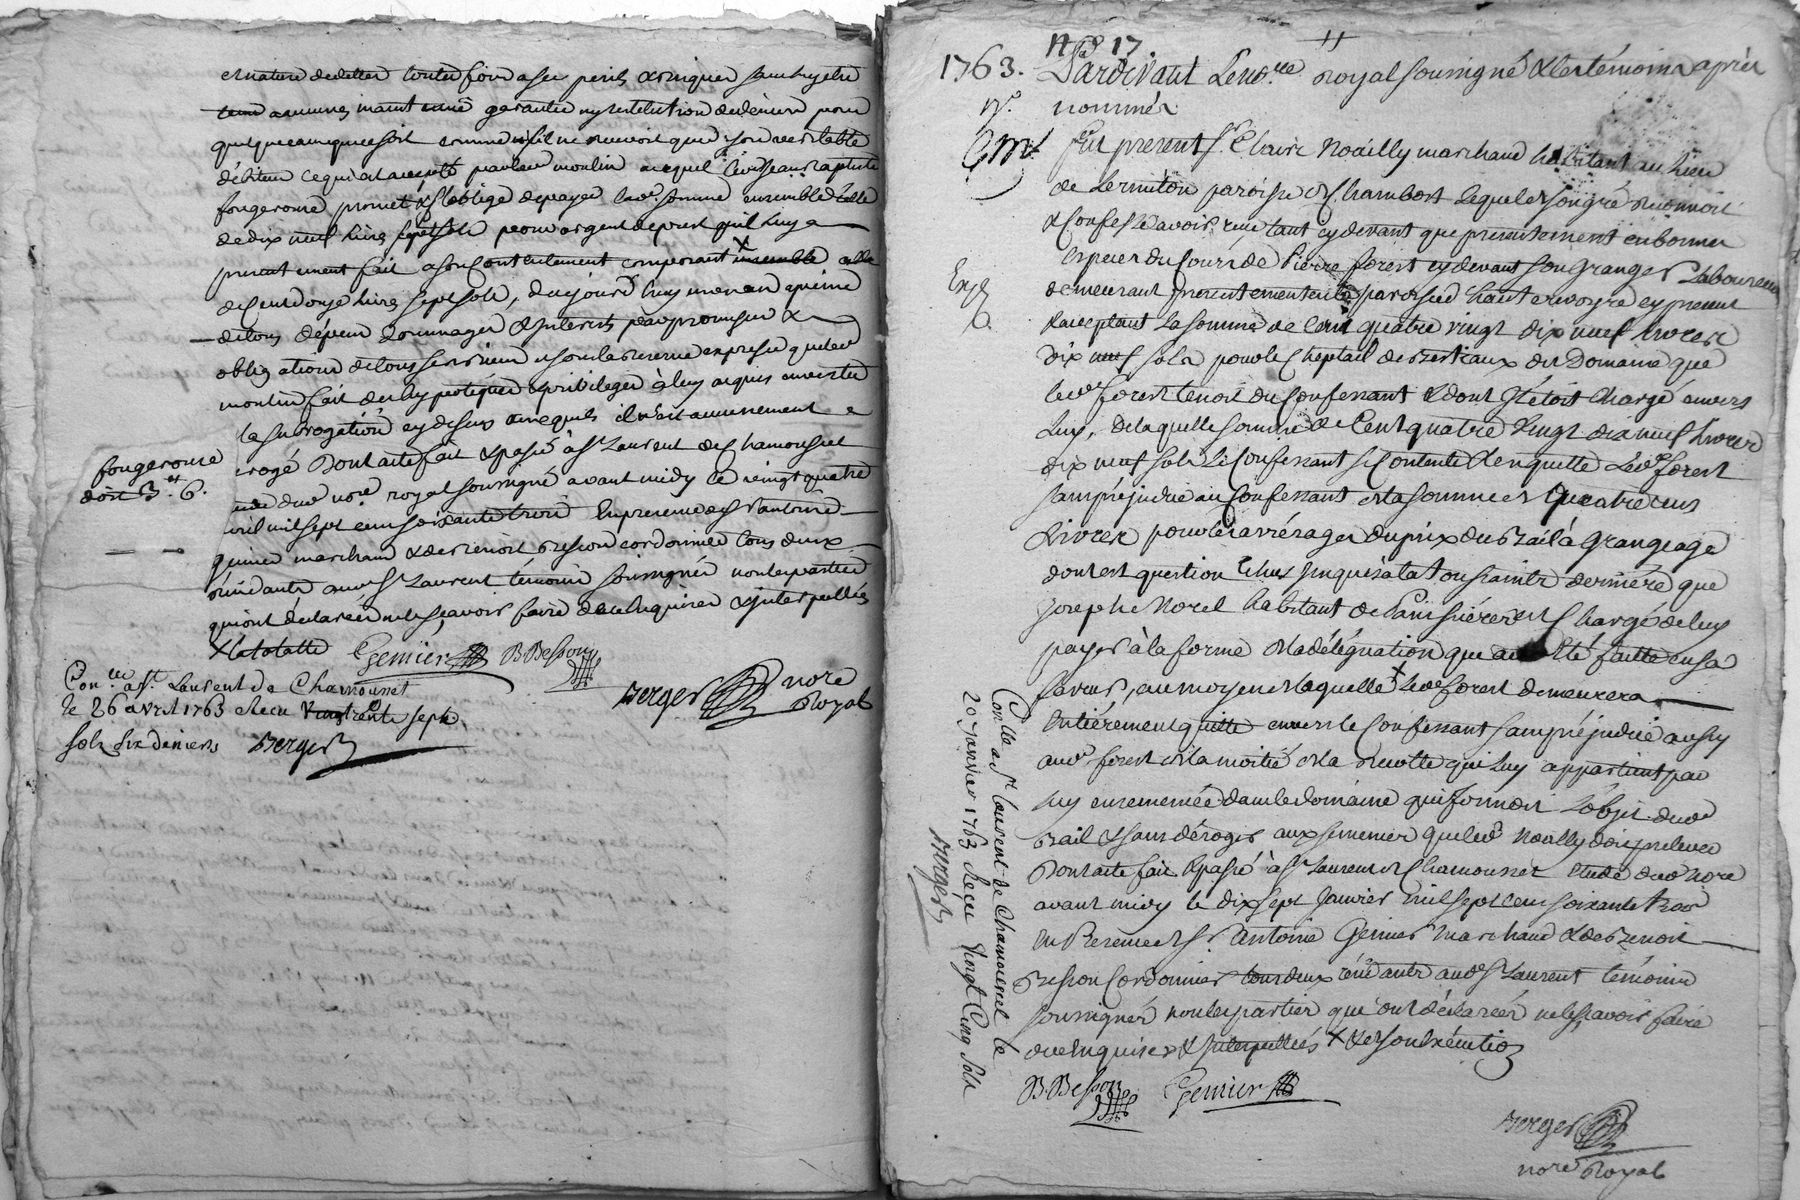 et nature de dettes toutes fois a ses perils & risques sans luy etre
tenu a aucunes maint garantie ny restitution de deniers pour
quelque cause que ce soit comme s'il ne recevoit que de son veritable
débiteur ce qui est accepté par led moulin auquel led sieur Jean baptiste
fougerouse promet & s'oblige de payer lad. somme ensemble celle
de dix neuf livres sept sols pour argent de prest qu'il luy a
presentement fait a son contentement composant ensemble celle
de cent douze livres sept sols, d'aujourd'huy en un an a peine
de tous dépens dommages & interests par promesse &
obligations de tous ses biens & sous la reserve expresse que led
moulin fait des hypoteques & privileges à luy acquis en vertu
de la subrogation cy dessus auxquels il n'est aucunement
dérogé Dont acte fait & passé à St Laurent de Chamousset
étude dud nore royal soussigné avant midy le vingt quatre
avril mil sept cent soixante trois En presence de Sr antoine
genier marchand & de Benoit Besson cordonnier tous deux
résidants aud St Laurent témoins soussignés non les parties
qui ont déclaré ne le sçavoir faire de ce enquises & interpellées
X la totalle
Genier B Besson
Berger nore Royal
fougerouse
doit 3.tt 6.
Con.lle a St. Laurent de Chamousset
le 26 avril 1763 Reçu trente sept
sols six deniers Berger
N.o 17
1763. Pardevant Le no.re royal soussigné & les témoins après
nommés
Fut present Sr. Claire Noailly marchand habitant au lieu
de Lermiton paroisse de Chambost Lequel de son gré reconnoit
& confesse avoir reçu tant cy devant que presentement en bonnes
especes du cours de Pierre forest cy devant son Granger & laboureur
demeurant presentement en la paroisse d'hauterivoyre cy present
& acceptant La somme de Cent quatre vingt dix neuf livres
dix neuf sols pour le Cheptail des Bestiaux du Domaine que
led. forest tenoit du Confessant & dont Il étoit Chargé envers
Luy, de laquelle somme de Cent quatre Vingt dix neuf livres
dix neuf sols le Confessant se Contente & en quitte Led. forest
sans préjudice au Confessant de la somme de Quatre cens
Livres pour les arrérages du prix du Bail à Grangeage
dont est question Echus Jusques à la Toussaints derniere que
Joseph Morel habitant de Panissiéres est Chargé de luy
payer à la forme de la délégation qui a été faitte en sa
faveur, au moyen de laquelle X led. forest demeurera
Entiérement quitte envers le Confessant sans préjudice aussy
aud. forest de la moitié de la recolte qui Luy appartient par
luy ensemencée dans le domaine qui formoit L'objet dud
Bail & sans déroger aux semences que led. Noailly doit prelever
Dont acte fait & passé à St Laurent de Chamousset Etude dud Nore
avant midy le dix sept Janvier mil sept cent soixante trois
En Presence de Sr. Antoine Genier Marchand & de Benoit
Besson Cordonnier tous deux résidants aud St Laurent témoins
soussignés non les parties qui ont déclaré ne le sçavoir faire
de ce Enquises & Interpellées X & de son Exécution
B. Besson Genier
Berger
nore Royal
Exp.
Con.lle a St. Laurent de Chamousset le
20 Janvier 1763 Reçu Vingt Cinq Sols
Berger